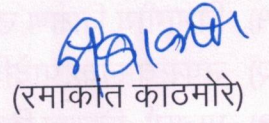 (रमाकांत काठमोरे)